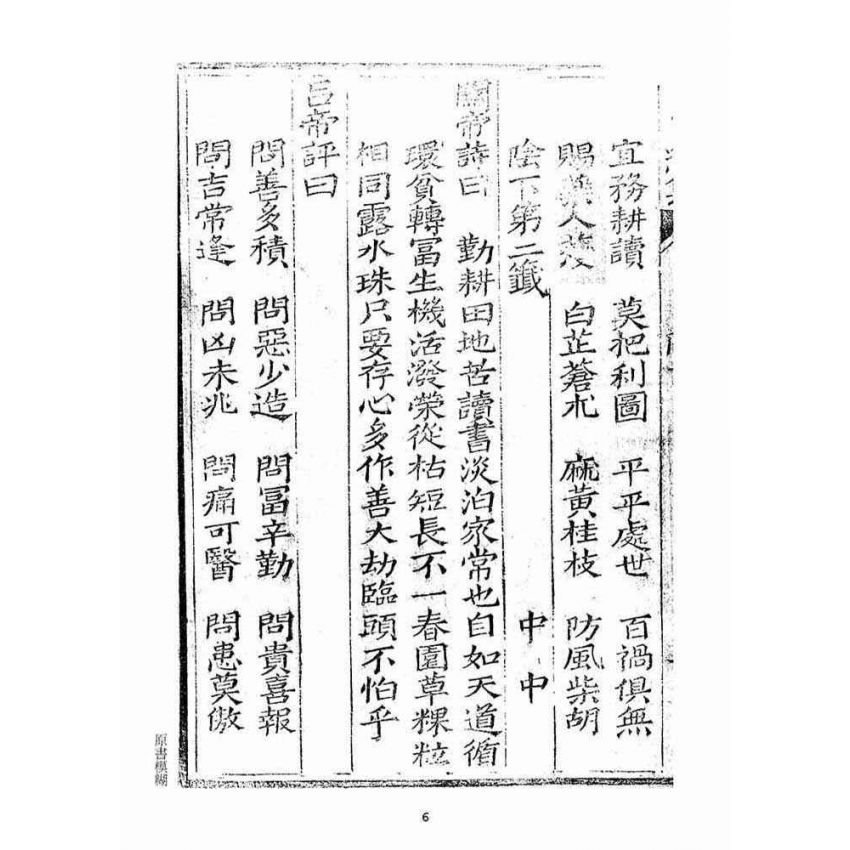 宜務耕讀 莫把利圖 平平處世 百禍俱無
賜藥人 白芷蒼朮 麻黃桂枝 防風柴胡
陰下第二籤 中中
關帝詩曰 勤耕田地苦讀書淡泊家常也自如天道循
環貧轉冨生機活潑榮從枯短長不一春園草粿粒
相同露水珠只要存心多作善大劫臨頭不怕乎
呂帝評曰
問善多積 問惡少造 問冨辛勤 問貴喜報
問吉常逢 問凶未兆 問痛可醫 問患莫傲
原書模糊
6